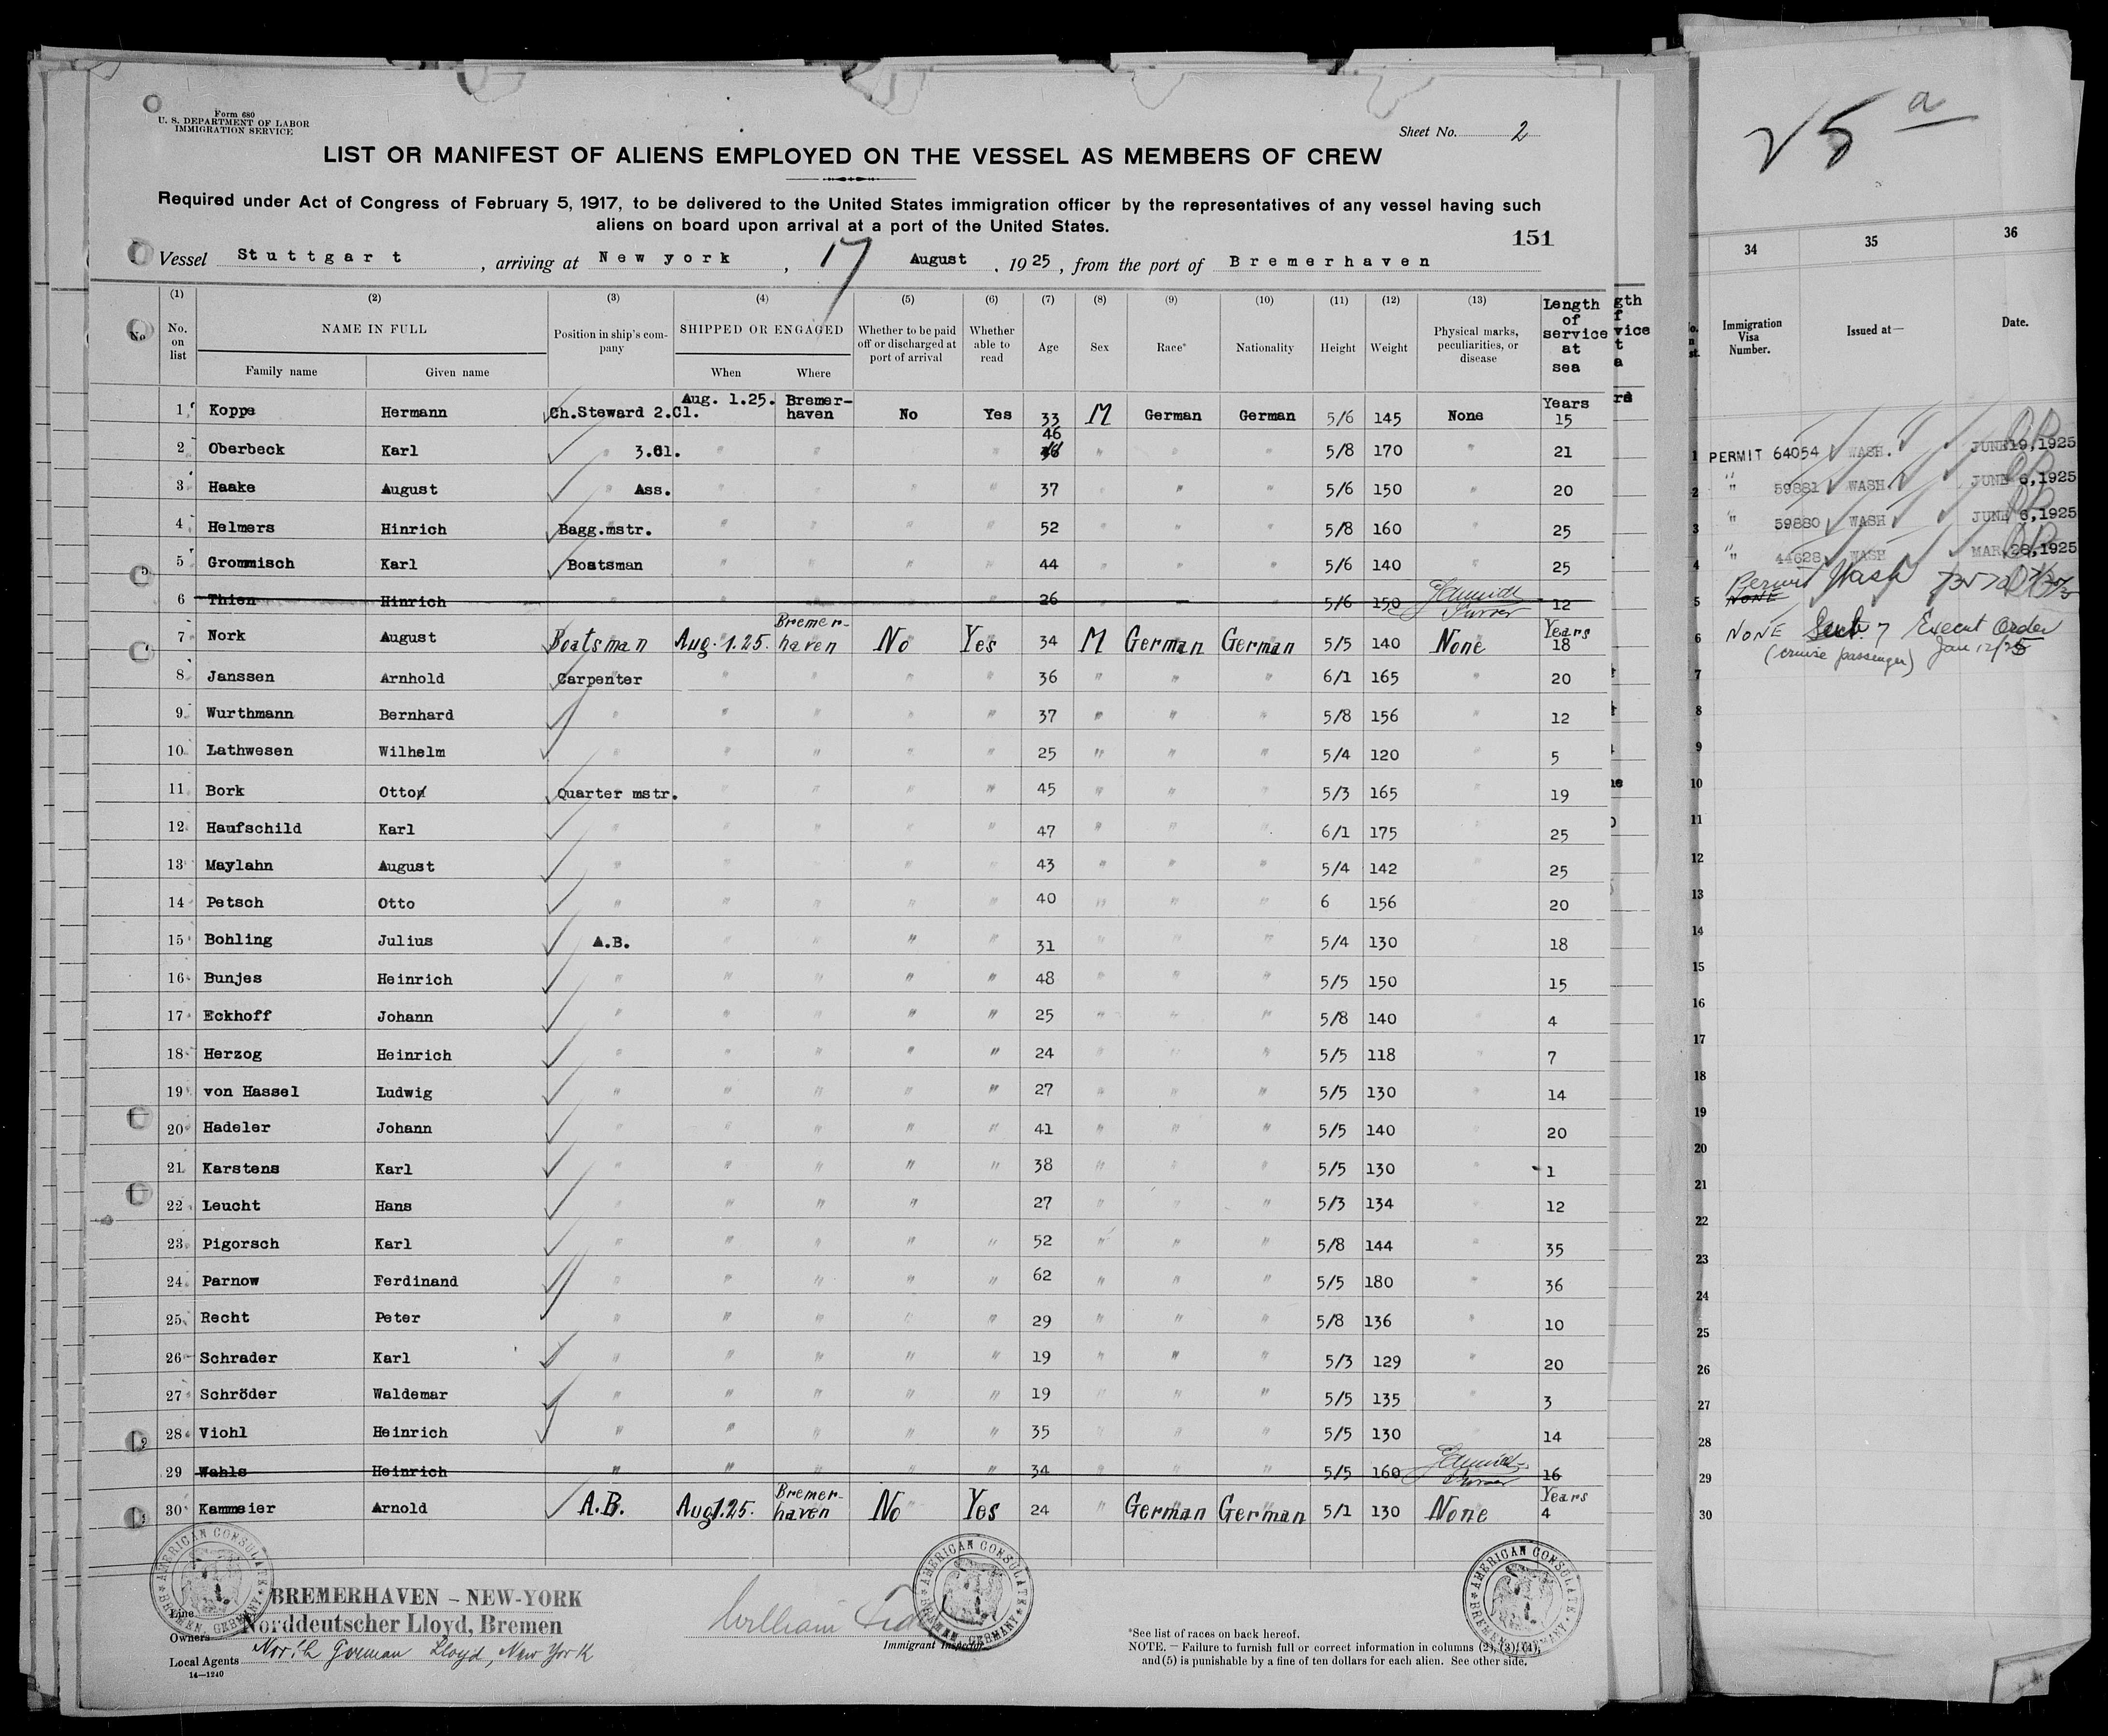 Form 680
U. S. DEPARTMENT OF LABOR
IMMIGRATION SERVICE
Sheet No. 2
LIST OR MANIFEST OF ALIENS EMPLOYED ON THE VESSEL AS MEMBERS OF CREW
Required under Act of Congress of February 5, 1917, to be delivered to the United States immigration officer by the representatives of any vessel having such
aliens on board upon arrival at a port of the United States.
151
Vessel Stuttgart, arriving at New york, 17 August, 1925, from the port of Bremerhaven
(1) (2) (3) (4) (5) (6) (7) (8) (9) (10) (11) (12) (13)
No. on list NAME IN FULL Family name Given name Position in ship's company SHIPPED OR ENGAGED When Where Whether to be paid off or discharged at port of arrival Whether able to read Age Sex Race* Nationality Height Weight Physical marks, peculiarities, or disease Length of service at sea
1 Koppe Hermann Ch.Steward 2.Cl. Aug. 1.25. Bremer-haven No Yes 33 M German German 5/6 145 None Years 15
2 Oberbeck Karl " 3.Cl. " " " " 46 " " " 5/8 170 " 21
3 Haake August " Ass. " " " " 37 " " " 5/6 150 " 20
4 Helmers Hinrich Bagg.mstr. " " " " 52 " " " 5/8 160 " 25
5 Grommisch Karl Boatsman " " " " 44 " " " 5/6 140 " 25
6 Thien Hinrich " " " " " 26 " " " 5/6 150 12
7 Nork August Boatsman Aug. 1.25. Bremer-haven No Yes 34 M German German 5/5 140 None Years 18
8 Janssen Arnhold Carpenter " " " " 36 " " " 6/1 165 " 20
9 Wurthmann Bernhard " " " " " 37 " " " 5/8 156 " 12
10 Lathwesen Wilhelm " " " " " 25 " " " 5/4 120 " 5
11 Bork Otto Quarter mstr. " " " " 45 " " " 5/3 165 " 19
12 Haufschild Karl " " " " " 47 " " " 6/1 175 " 25
13 Maylahn August " " " " " 43 " " " 5/4 142 " 25
14 Petsch Otto " " " " " 40 " " " 6 156 " 20
15 Bohling Julius A.B. " " " " 31 " " " 5/4 130 " 18
16 Bunjes Heinrich " " " " " 48 " " " 5/5 150 " 15
17 Eckhoff Johann " " " " " 25 " " " 5/8 140 " 4
18 Herzog Heinrich " " " " " 24 " " " 5/5 118 " 7
19 von Hassel Ludwig " " " " " 27 " " " 5/5 130 " 14
20 Hadeler Johann " " " " " 41 " " " 5/5 140 " 20
21 Karstens Karl " " " " " 38 " " " 5/5 130 " 1
22 Leucht Hans " " " " " 27 " " " 5/3 134 " 12
23 Pigorsch Karl " " " " " 52 " " " 5/8 144 " 35
24 Parnow Ferdinand " " " " " 62 " " " 5/5 180 " 36
25 Recht Peter " " " " " 29 " " " 5/8 136 " 10
26 Schrader Karl " " " " " 19 " " " 5/3 129 " 20
27 Schröder Waldemar " " " " " 19 " " " 5/5 135 " 3
28 Viohl Heinrich " " " " " 35 " " " 5/5 130 " 14
29 Wahls Heinrich " " " " " 34 " " " 5/5 160 16
30 Kammeier Arnold A.B. Aug 1.25. Bremer-haven No Yes 24 " German German 5/1 130 None Years 4
AMERICAN CONSULATE BREMEN, GERMANY
AMERICAN CONSULATE BREMEN, GERMANY
AMERICAN CONSULATE BREMEN, GERMANY
Line BREMERHAVEN – NEW-YORK
Owners Norddeutscher Lloyd, Bremen
Local Agents North German Lloyd, New York
14—1240
William
Immigrant Inspector.
*See list of races on back hereof.
NOTE. — Failure to furnish full or correct information in columns (2), (3), (4),
and (5) is punishable by a fine of ten dollars for each alien. See other side.
25 a
34 35 36
Immigration Visa Number. Issued at— Date.
1 PERMIT 64054 WASH. JUNE 19, 1925
2 " 59881 WASH. JUNE 6, 1925
3 " 59880 WASH JUNE 6, 1925
4 " 44628 WASH MAR 28, 1925
5 Permit Wash
NONE
6 NONE Sub. 7 Execut Order
(cruise passenger) Jan 12/25
7
8
9
10
11
12
13
14
15
16
17
18
19
20
21
22
23
24
25
26
27
28
29
30